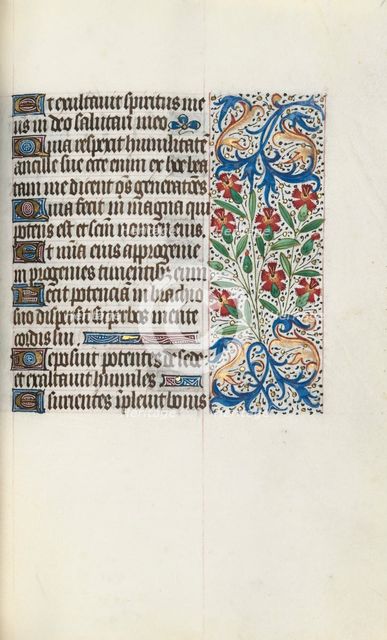 Et exultavit spiritus me
us in deo salutari meo
Quia respexit humilitatē
ancille sue ecce enim ex hoc bea
tam me dicent oēs generatōes
Quia fecit m̄ magna qui
potens est et scm̄ nomen eius.
Et mīa eius a progenie
in progenies timentibz eum
Fecit potenciā in brachio
suo dispersit superbos mente
cordis sui.
Deposuit potentes de sede
et exaltavit humiles
Esurientes īplevit bonis